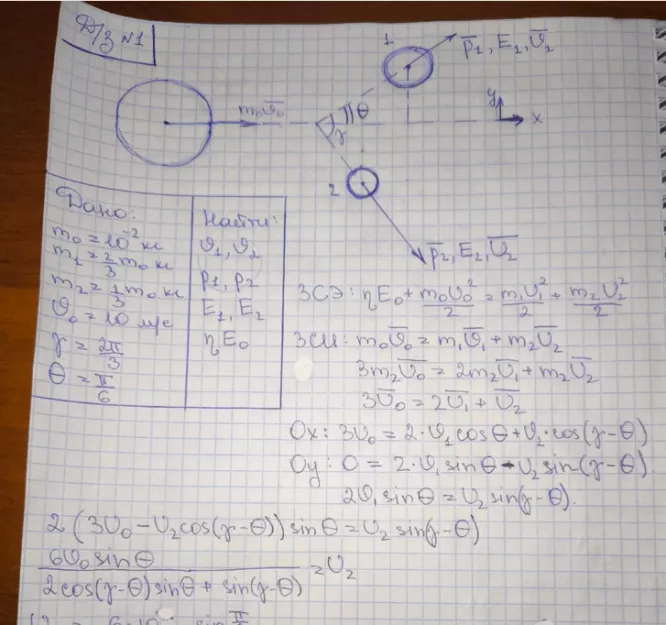 Д/З №1
1
p̄₁, E₁, ῡ₁
m₀ῡ₀
θ
γ
y
x
2
p̄₂, E₂, ῡ₂
Дано:
m₀ = 10⁻² кг
m₁ = 2/3 m₀ кг
m₂ = 1/3 m₀ кг
υ₀ = 10 м/с
γ = 2π/3
θ = π/6
Найти:
υ₁, υ₂
p₁, p₂
E₁, E₂
ηE₀
ЗСЭ: ηE₀ + m₀υ₀²/2 = m₁υ₁²/2 + m₂υ₂²/2
ЗСИ: m₀ῡ₀ = m₁ῡ₁ + m₂ῡ₂
3m₂ῡ₀ = 2m₂ῡ₁ + m₂ῡ₂
3ῡ₀ = 2ῡ₁ + ῡ₂
Ox: 3υ₀ = 2·υ₁cosθ + υ₂·cos(γ-θ)
Oy: 0 = 2·υ₁sinθ - υ₂sin(γ-θ)
2υ₁sinθ = υ₂sin(γ-θ).
2(3υ₀ - υ₂cos(γ-θ))sinθ = υ₂sin(γ-θ)
6υ₀sinθ / 2cos(γ-θ)sinθ + sin(γ-θ) = υ₂